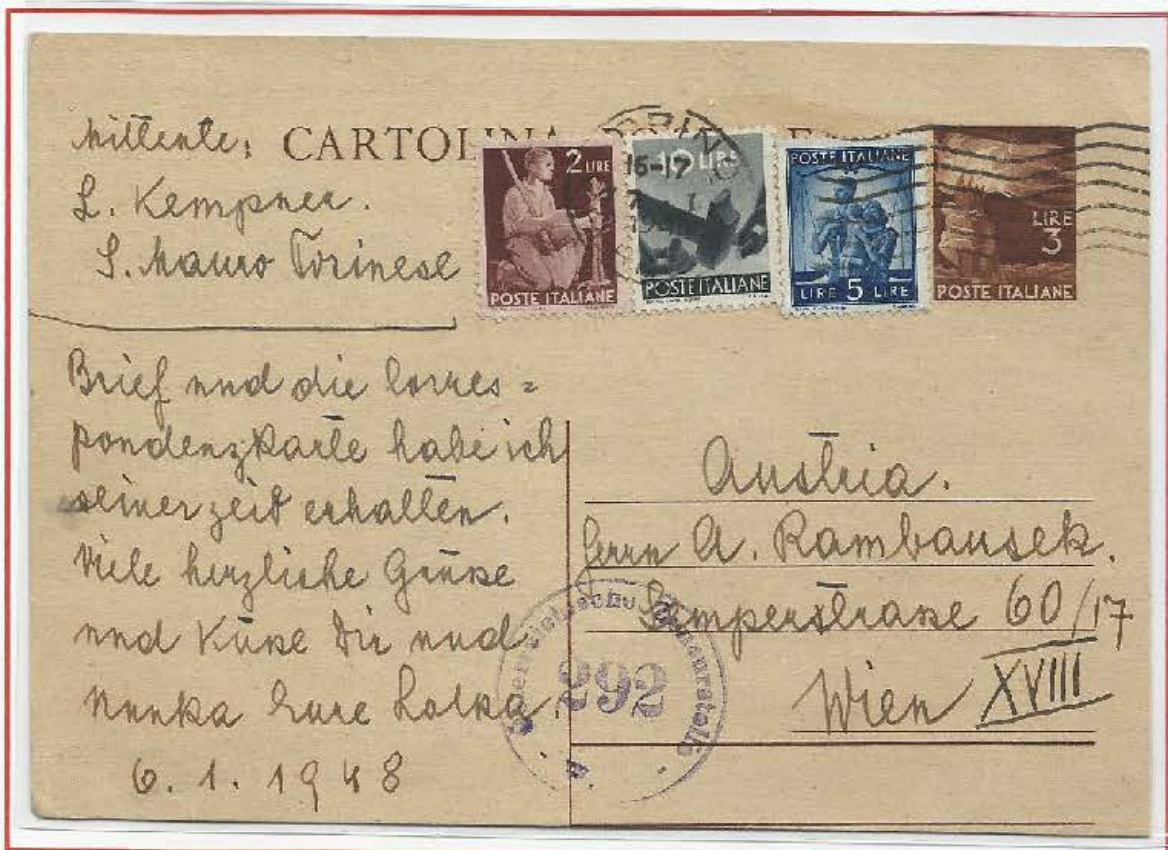 CARTOLINA PO
Mittente:
L. Kempner.
S. Mauro Torinese
2 LIRE
POSTE ITALIANE
10 LIRE
POSTE ITALIANE
POSTE ITALIANE
LIRE 5 LIRE
LIRE
3
POSTE ITALIANE
16-17
Brief und die Corres=
pondenzkarte habe ich
seinerzeit erhalten.
Viele herzliche Grüsse
und Küsse Dir und
Nunka Eure Lolka.
6. 1. 1948
Austria.
Herrn A. Rambausek.
Semperstrasse 60/17
Wien XVIII
Österreichische Zensurstelle
292